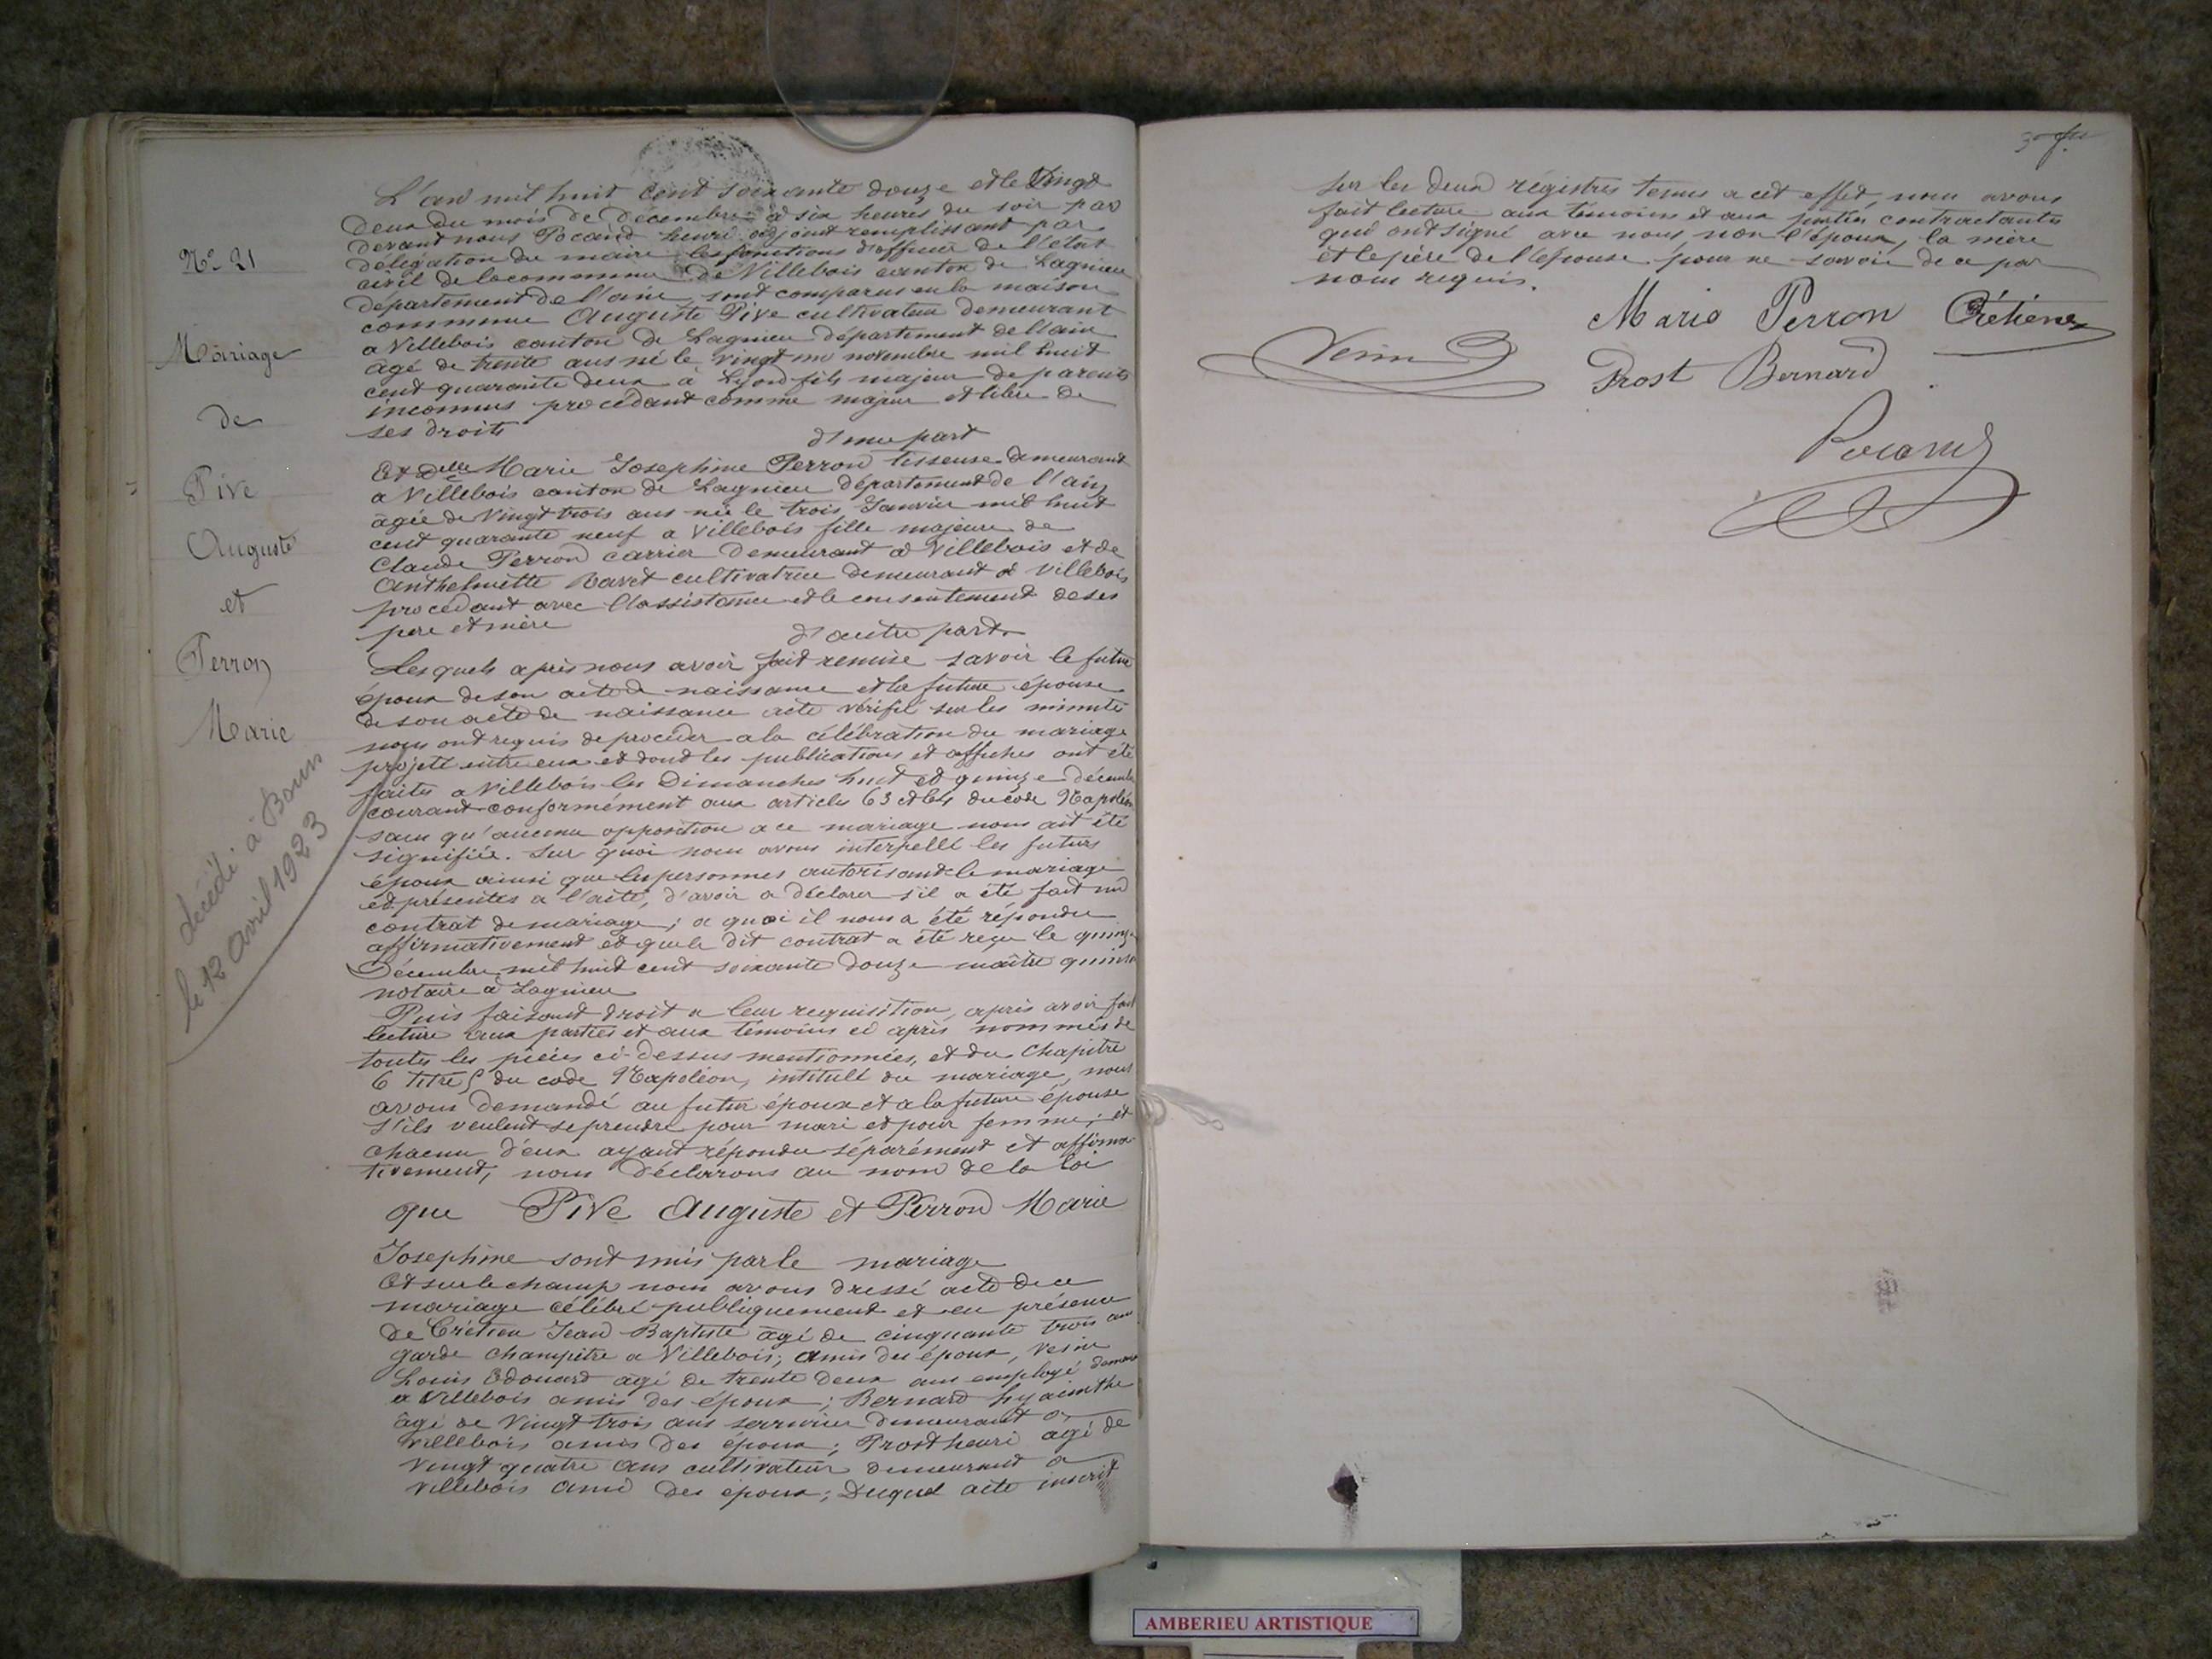 N° 21
Mariage
de
Pive
Auguste
et
Perron
Marie
décédé à Bourg
le 12 avril 1923
L'an mil huit cent soixante douze et le Vingt
deux du mois de décembre à six heures du soir par
devant nous Pocand henri adjoint remplissant par
délégation du maire les fonctions d'officier de l'état
civil de la commune de Villebois canton de Lagnieu
département de l'ain, sont comparus en la maison
commune Auguste Pive cultivateur demeurant
a Villebois canton de Lagnieu département de l'ain
agé de trente ans né le vingt un novembre mil huit
cent quarante deux à Lyon fils majeur de parents
inconnus procédant comme majeur et libre de
ses droits
d'une part
Et Delle Marie Josephine Perron tisseuse demeurant
a Villebois canton de Lagnieu département de l'ain
agée de Vingt trois ans née le trois Janvier mil huit
cent quarante neuf a Villebois fille majeure de
Claude Perron carrier demeurant a Villebois et de
Anthelmette Ravet cultivatrice demeurant a Villebois
procédant avec l'assistance et le consentement de ses
père et mère
d'autre part
Lesquels après nous avoir fait remise savoir le futur
époux de son acte de naissance et la future épouse
de son acte de naissance acte vérifié sur les minutes
nous ont requis de procéder a la célébration du mariage
projeté entre eux et dont les publications et affiches ont été
faites a Villebois les Dimanches huit et quinze décembre
courant conformément aux articles 63 et 64 du code Napoléon
sans qu'aucune opposition a ce mariage nous ait été
signifiée. Sur quoi nous avons interpellé les futurs
époux ainsi que les personnes autorisant le mariage
et présentes a l'acte, d'avoir a déclarer s'il a été fait un
contrat de mariage; a quoi il nous a été répondu
affirmativement et que le dit contrat a été reçu le quinze
Décembre mil huit cent soixante douze maître
notaire à Lagnieu
Puis faisant droit a leur requisition, après avoir fait
lecture aux parties et aux témoins ci après nommés de
toutes les pièces ci-dessus mentionnées, et du Chapitre
6 titre 5 du code Napoléon, intitulé du mariage, nous
avons demandé au futur époux et a la future épouse
s'ils veulent se prendre pour mari et pour femme; et
chacun d'eux ayant répondu séparément et affirma
tivement, nous déclarons au nom de la loi
que Pive Auguste et Perron Marie
Josephine sont unis par le mariage
Et sur le champ nous avons dressé acte de ce
mariage célébré publiquement et en présence
de Crétien Jean Baptiste agé de cinquante trois ans
garde champêtre a Villebois; amis des époux, Vesin
Louis Edouard agé de trente deux ans employé
a Villebois amis des époux; Bernard hyacinthe
âgé de Vingt trois ans serrurier demeurant a
Villebois amis des époux; Prost henri agé de
Vingt quatre ans cultivateur demeurant a
Villebois ami des époux; Duquel acte inscrit
sur les deux régistres tenus a cet effet, nous avons
fait lecture aux témoins et aux parties contractantes
qui ont signé avec nous, non l'époux, la mère
et le père de l'épouse pour ne savoir de ce par
nous requis.
Marie Perron Crétien
Vesin Prost Bernard
Pocand
AMBERIEU ARTISTIQUE